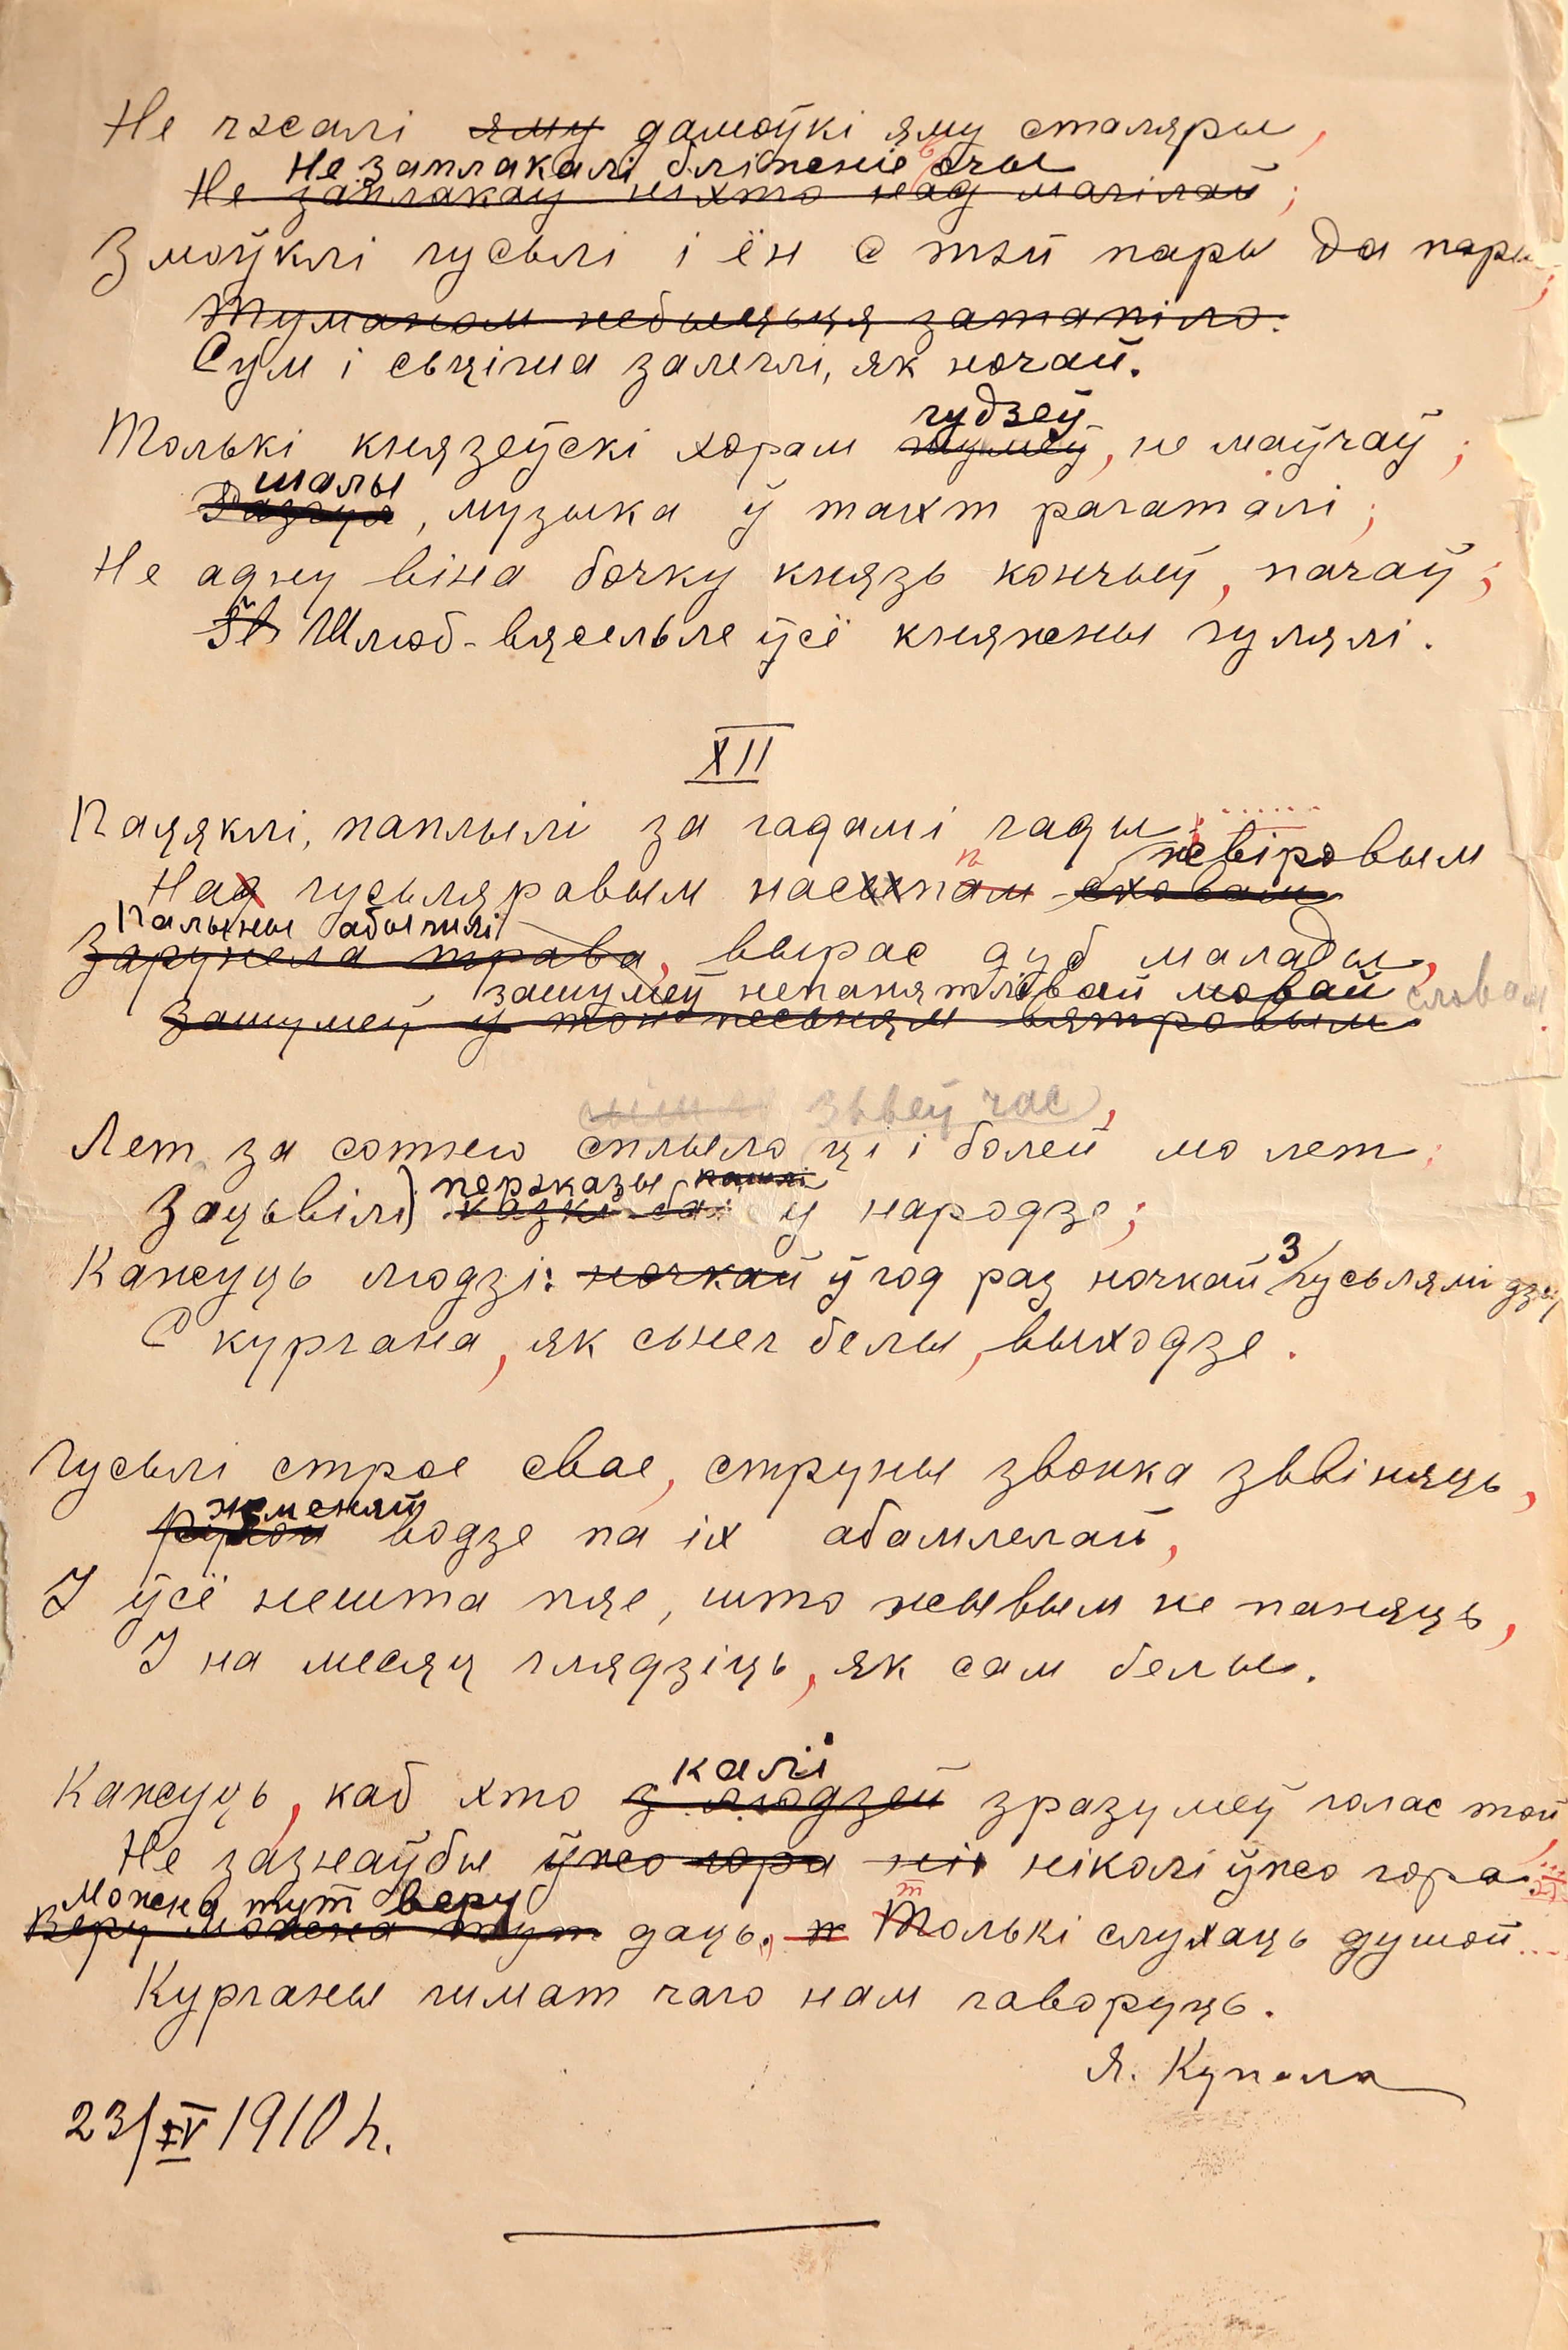 Не гжалі яму дамоўкі яму сталяры,
Не заплакалі бліжніе вочы
Не заплакаў ніхто над магілай;
Змоўклі гусьлі і ён с тэй пары да пары;
Туманом небыцьця затапіло.
Сум і сьцішa залеглі, як ночай.
гудзеў
Толькі князеўскі хорам шумеў, не маўчаў;
шалы
Разгул, музыка ў тахт рагаталі;
Не адну віна бочку князь кончыў, пачаў;
Шлюб-вяселье ўсё княжны гулялі.
XII
Пацяклі, паплылі за гадамі гады;
жвіровым
Над гусьляровым насыпам схован
Палыны абыгплі
Зарунела трава, вырас дуб малады,
зашумеў непанятлівай мовай словам
Зашумеў у тон песьням вятровым
зьвеў час,
Лет за сотню сплыло ці і болей мо лет;
пераказы пашлі
Зацьвілі казкі ба у народзе;
Кажуць людзі: ночкай ў год раз ночкай з гусьлямі дзед
С кургана, як сьнег белы, выходзе.
Гусьлі строе свае, струны звонка зьвіняць,
жменяй
Рукой водзе па іх абамлелай,
І ўсё нешта пяе, што жывым не паняць,
І на месяц глядзіць, як сам белы.
калі
Кажуць, каб хто з людзей зразумеў голас той
Не зазнаўбы ўжо гора ніг ніколі ўжо гора...
Можна тут веру
Веру можна тут даць, ж Толькі слухаць душой...
Курганы шмат чаго нам гаворуць.
Я. Купала
23/IV 1910 г.